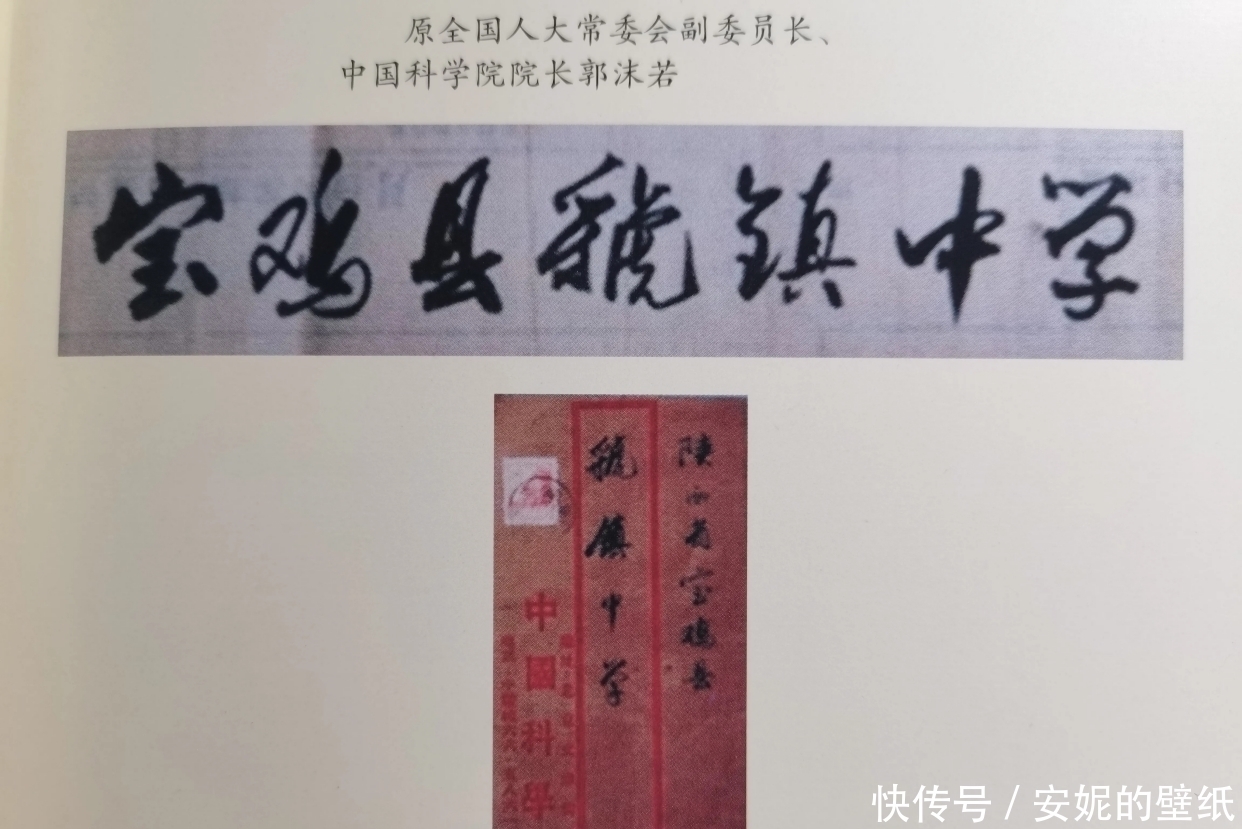 原全国人大常委会副委员长、
中国科学院院长郭沫若
宝鸡县虢镇中学
陕西省宝鸡县
虢镇中学
中国科學
快传号 / 安妮的壁纸